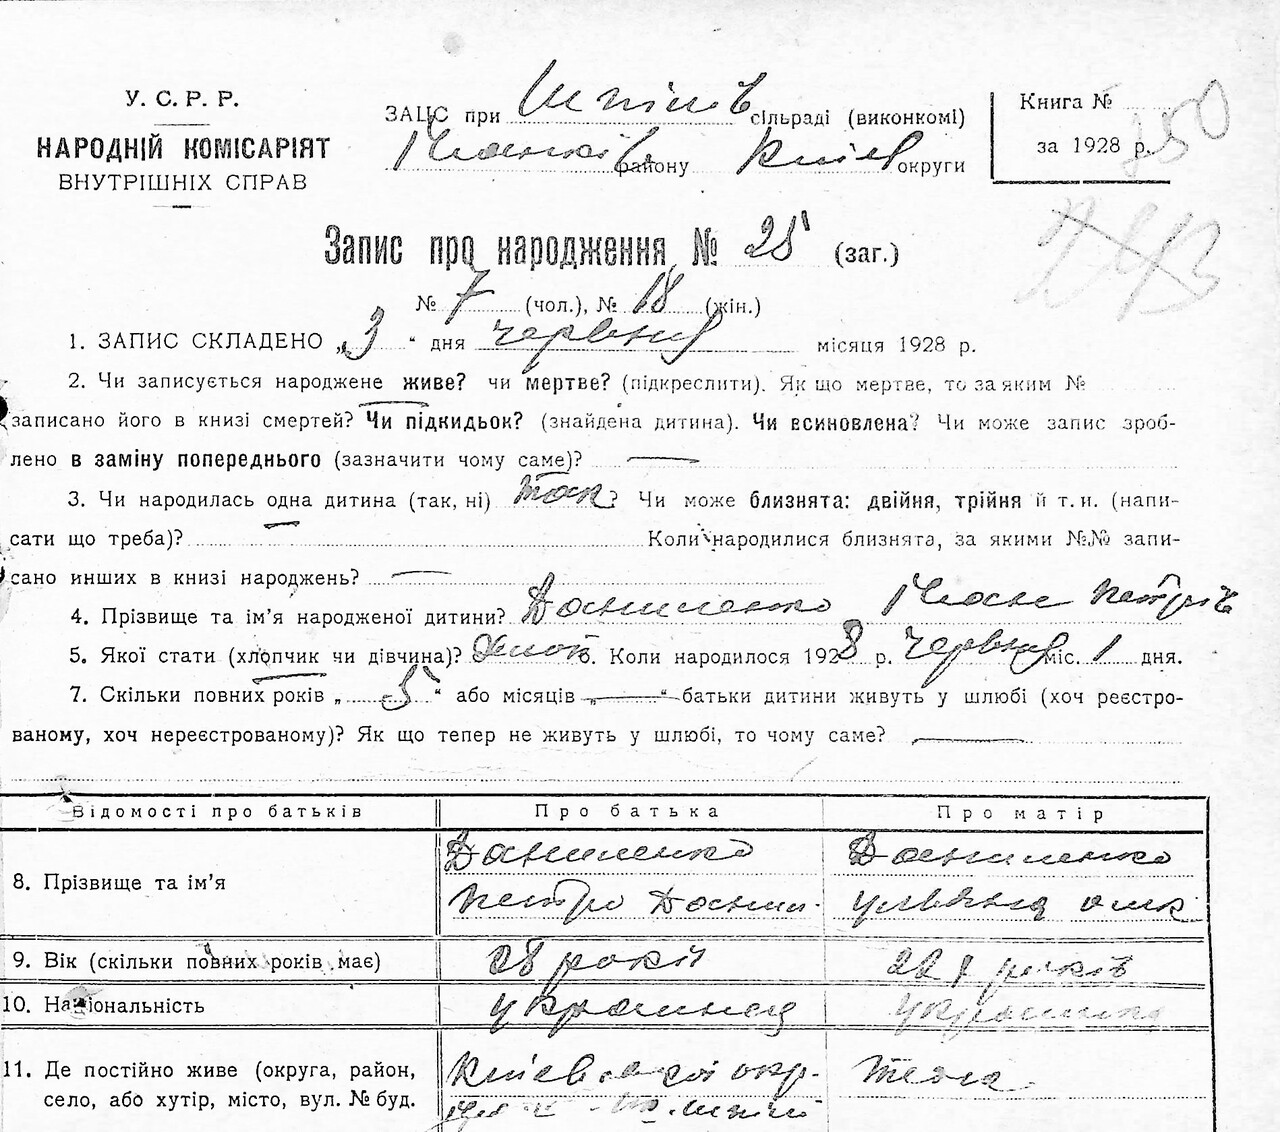 У. С. Р. Р.
НАРОДНІЙ КОМІСАРІЯТ
ВНУТРІШНІХ СПРАВ
ЗАЦС при сільраді (виконкомі)
району Київ округи
Книга №
за 1928 р.
250
Запис про народження № 25 (заг.)
№ 7 (чол.), № 18 (жін.)
1. ЗАПИС СКЛАДЕНО „3“ дня червня місяця 1928 р.
2. Чи записується народжене живе? чи мертве? (підкреслити). Як що мертве, то за яким №
записано його в книзі смертей? Чи підкидьок? (знайдена дитина). Чи всиновлена? Чи може запис зроб-
лено в заміну попереднього (зазначити чому саме)? —
3. Чи народилась одна дитина (так, ні) так? Чи може близнята: двійня, трійня й т. и. (напи-
сати що треба)? Коли народилися близнята, за якими №№ запи-
сано инших в книзі народжень? —
4. Прізвище та ім’я народженої дитини? Даниленко Іван Петрів
5. Якої стати (хлопчик чи дівчина)? 6. Коли народилося 1928 р. червня міс. 1 дня.
7. Скільки повних років „5“ або місяців „—“ батьки дитини живуть у шлюбі (хоч реєстро-
ваному, хоч нереєстрованому)? Як що тепер не живуть у шлюбі, то чому саме? —
Відомості про батьків Про батька Про матір
8. Прізвище та ім’я Даниленко Петро Данил. Даниленко Уляна
9. Вік (скільки повних років має) 28 років років
10. Національність українец українка
11. Де постійно живе (округа, район, окр. теж
село, або хутір, місто, вул. № буд.